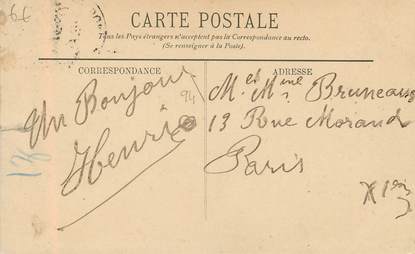 6€
CARTE POSTALE
Tous les Pays étrangers n'acceptent pas la Correspondance au recto.
(Se renseigner à la Poste).
CORRESPONDANCE
ADRESSE
Un Bonjour
Henri
94
18
M. et Mme Bruneaux
13 Rue Morand
Paris